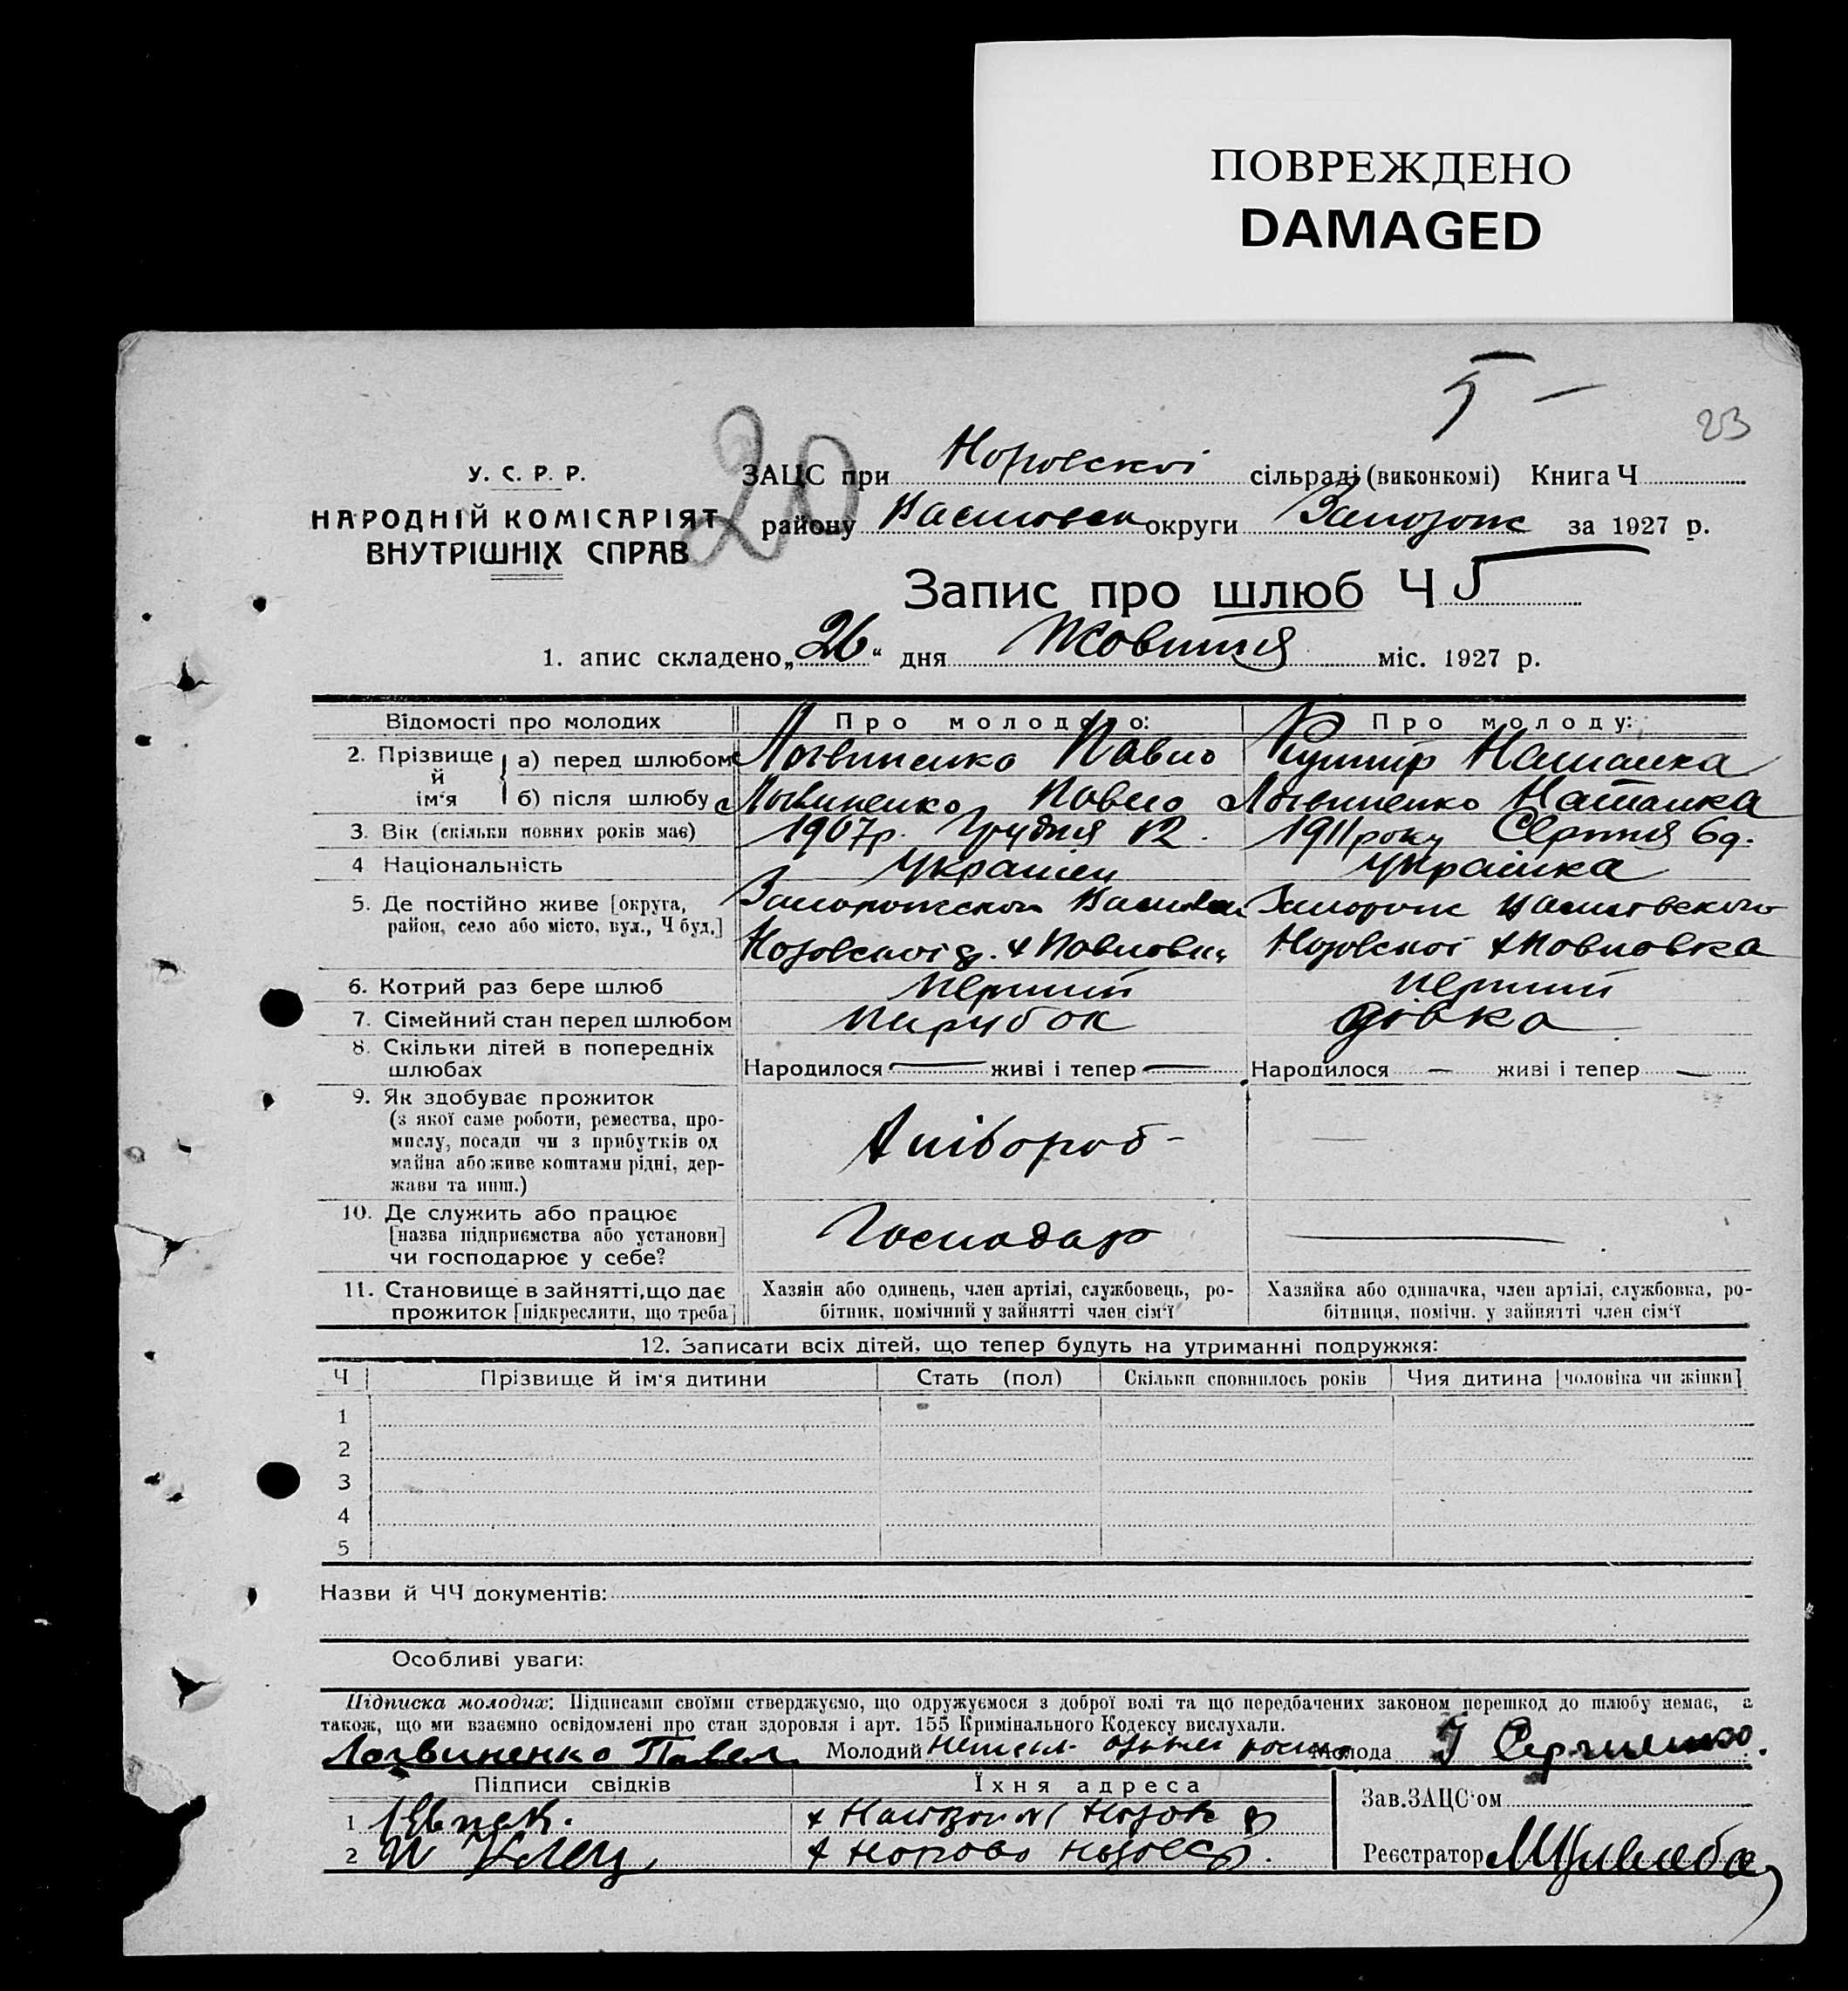 ПОВРЕЖДЕНО
DAMAGED
5 –
23
20
У. С. Р. Р.
НАРОДНІЙ КОМІСАРІЯТ
ВНУТРІШНІХ СПРАВ
ЗАЦС при сільраді (виконкомі) Книга Ч
району округи Запорож за 1927 р.
Запис про шлюб Ч 5
1. апис складено „26“ дня Жовтня міс. 1927 р.
Відомості про молодих Про молодого: Про молоду:
2. Прізвище й ім‘я
а) перед шлюбом Логвиненко Павло Кушнір Наталка
б) після шлюбу Логвиненко Павло Логвиненко Наталка
3. Вік (скільки повних років має) 1907р. Грудня 12. 1911 року Серпня 6д.
4 Національність Українец Українка
5. Де постійно живе [округа,
район, село або місто, вул., Ч буд.]
Запорож Василевского
х Павловка х Павловка
6. Котрий раз бере шлюб Перший Перший
7. Сімейний стан перед шлюбом Парубок Дівка
8. Скільки дітей в попередніх
шлюбах
Народилося — живі і тепер — Народилося — живі і тепер —
9. Як здобуває прожиток
(з якої саме роботи, ремества, про-
мислу, посади чи з прибутків од
майна або живе коштами рідні, дер-
жави та инш.)
Хлібороб - —
10. Де служить або працює
[назва підприємства або установи]
чи господарює у себе?
Господар —
11. Становище в зайнятті, що дає
прожиток [підкреслити, що треба]
Хазяін або одинець, член артілі, службовець, ро-
бітник, помічний у зайнятті член сім‘ї
Хазяйка або одиначка, член артілі, службовка, ро-
бітниця, помічн. у зайнятті член сім‘ї
12. Записати всіх дітей, що тепер будуть на утриманні подружжя:
Ч Прізвище й ім‘я дитини Стать (пол) Скільки сповнилось років Чия дитина [чоловіка чи жінки]
1
2
3
4
5
Назви й ЧЧ документів:
Особливі уваги:
Підписка молодих: Підписами своїми стверджуємо, що одружуємося з доброї волі та що передбачених законом перешкод до шлюбу немає, а
також, що ми взаємно освідомлені про стан здоровля і арт. 155 Кримінального Кодексу вислухали.
Логвиненко Павел Молодий Молода
Підписи свідків Їхня адреса
1
2
Зав. ЗАЦС‘ом
Реєстратор